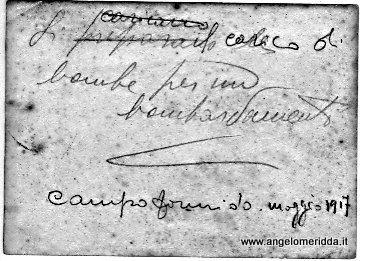 Si preparato carico di
bombe per un
bombardamento
Campoformido. maggio 1917
www.angelomeridda.it